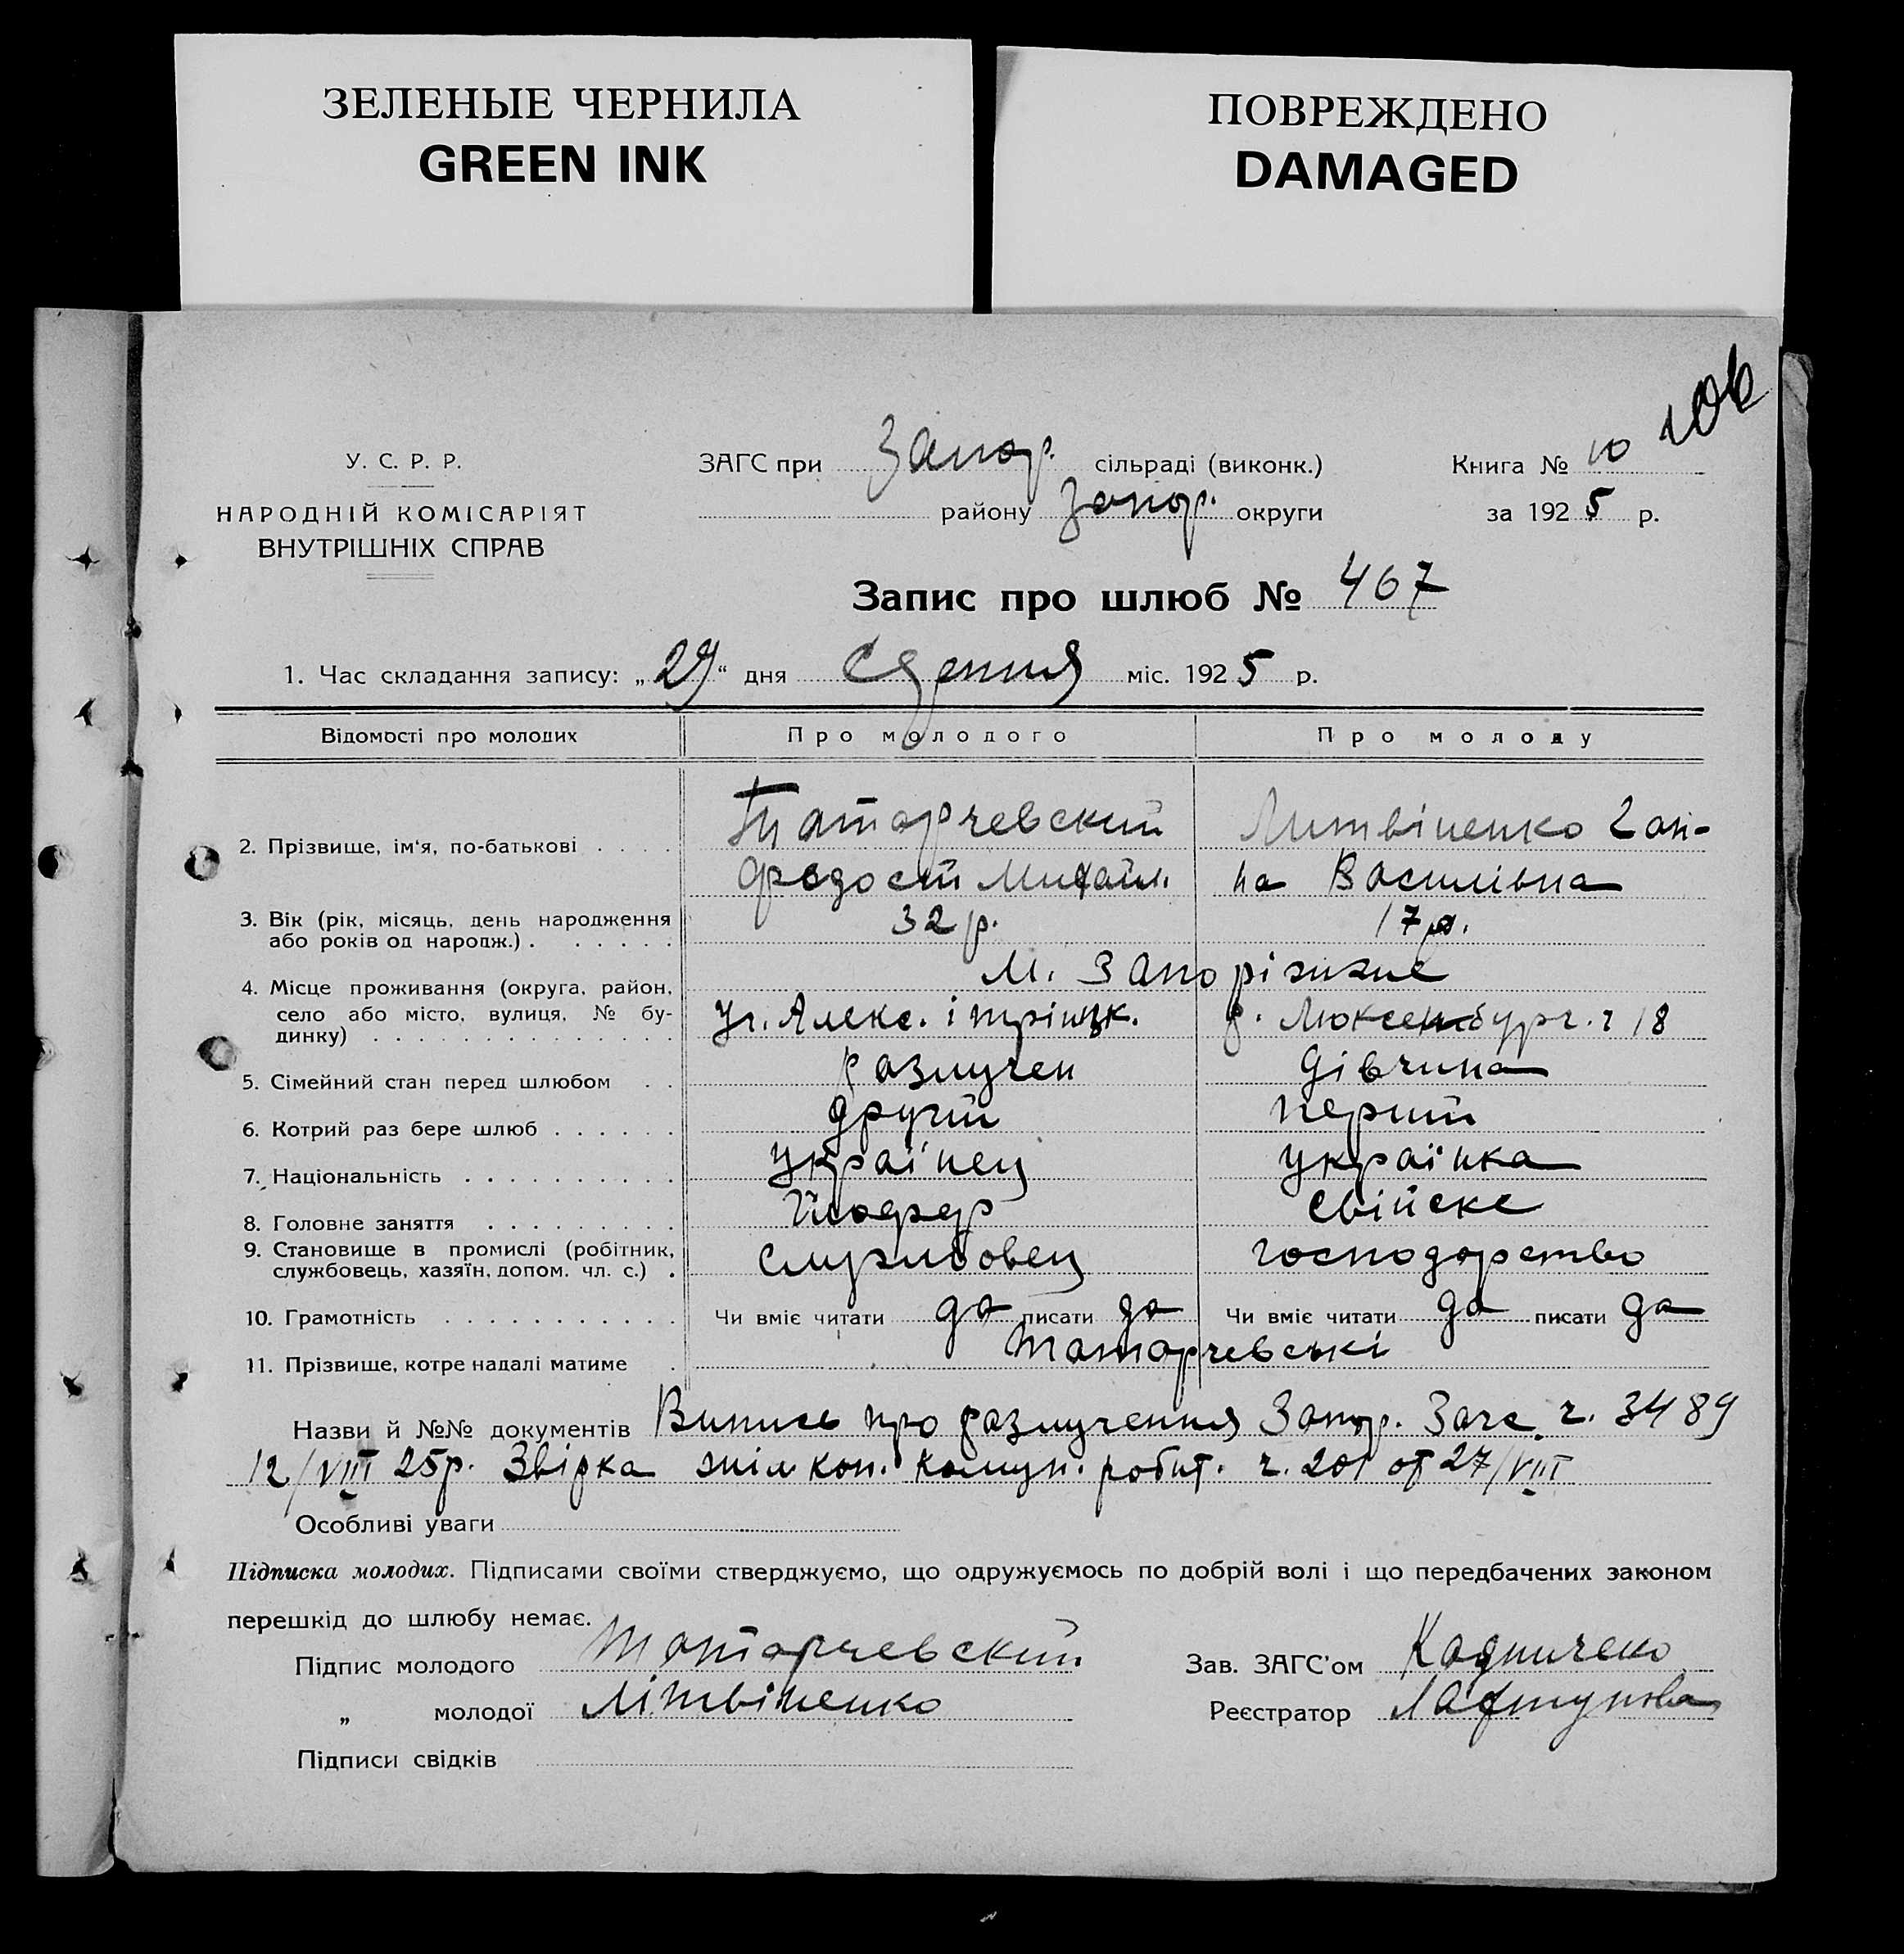 ЗЕЛЕНЫЕ ЧЕРНИЛА
GREEN INK
ПОВРЕЖДЕНО
DAMAGED
106
У. С. Р. Р.
НАРОДНІЙ КОМІСАРІЯТ
ВНУТРІШНІХ СПРАВ
ЗАГС при Запор. сільраді (виконк.)
району Запор. округи
Книга № 10
за 1925 р.
Запис про шлюб № 467
1. Час складання запису: „29“ дня Серпня міс. 1925 р.
Відомості про молодих Про молодого Про молоду
2. Прізвище, ім‘я, по-батькові . . . . Татарчевский Литвіненко Ган-
Феодосій Михайл. на Василівна
3. Вік (рік, місяць, день народження або років од народж.) . . . . . . 32 р. 17 р.
4. Місце проживання (округа, район, село або місто, вулиця, № будинку) м. Запоріжже
Уг. Алекс. і р. Люксембург. ч 18
5. Сімейний стан перед шлюбом . . разлучен дівчина
6. Котрий раз бере шлюб . . . . . . другій перший
7. Національність . . . . . . . . . . українец українка
8. Головне заняття . . . . . . . . . Шофер свійске
9. Становище в промислі (робітник, службовець, хазяїн, допом. чл. с.) . службовец господарство
10. Грамотність . . . . . . . . . . . Чи вміє читати да писати да Чи вміє читати да писати да
11. Прізвище, котре надалі матиме . Татарчевські
Назви й №№ документів Випись про разлучення Запор. Загс ч. 3489
12/VIII 25р. Звірка жіл. кон. комун. робит. ч. 201 от 27/VIII
Особливі уваги
Підписка молодих. Підписами своїми стверджуємо, що одружуємось по добрій волі і що передбачених законом
перешкід до шлюбу немає.
Підпис молодого Татарчевский Зав. ЗАГС’ом
„ молодої Літвіненко Реєстратор
Підписи свідків